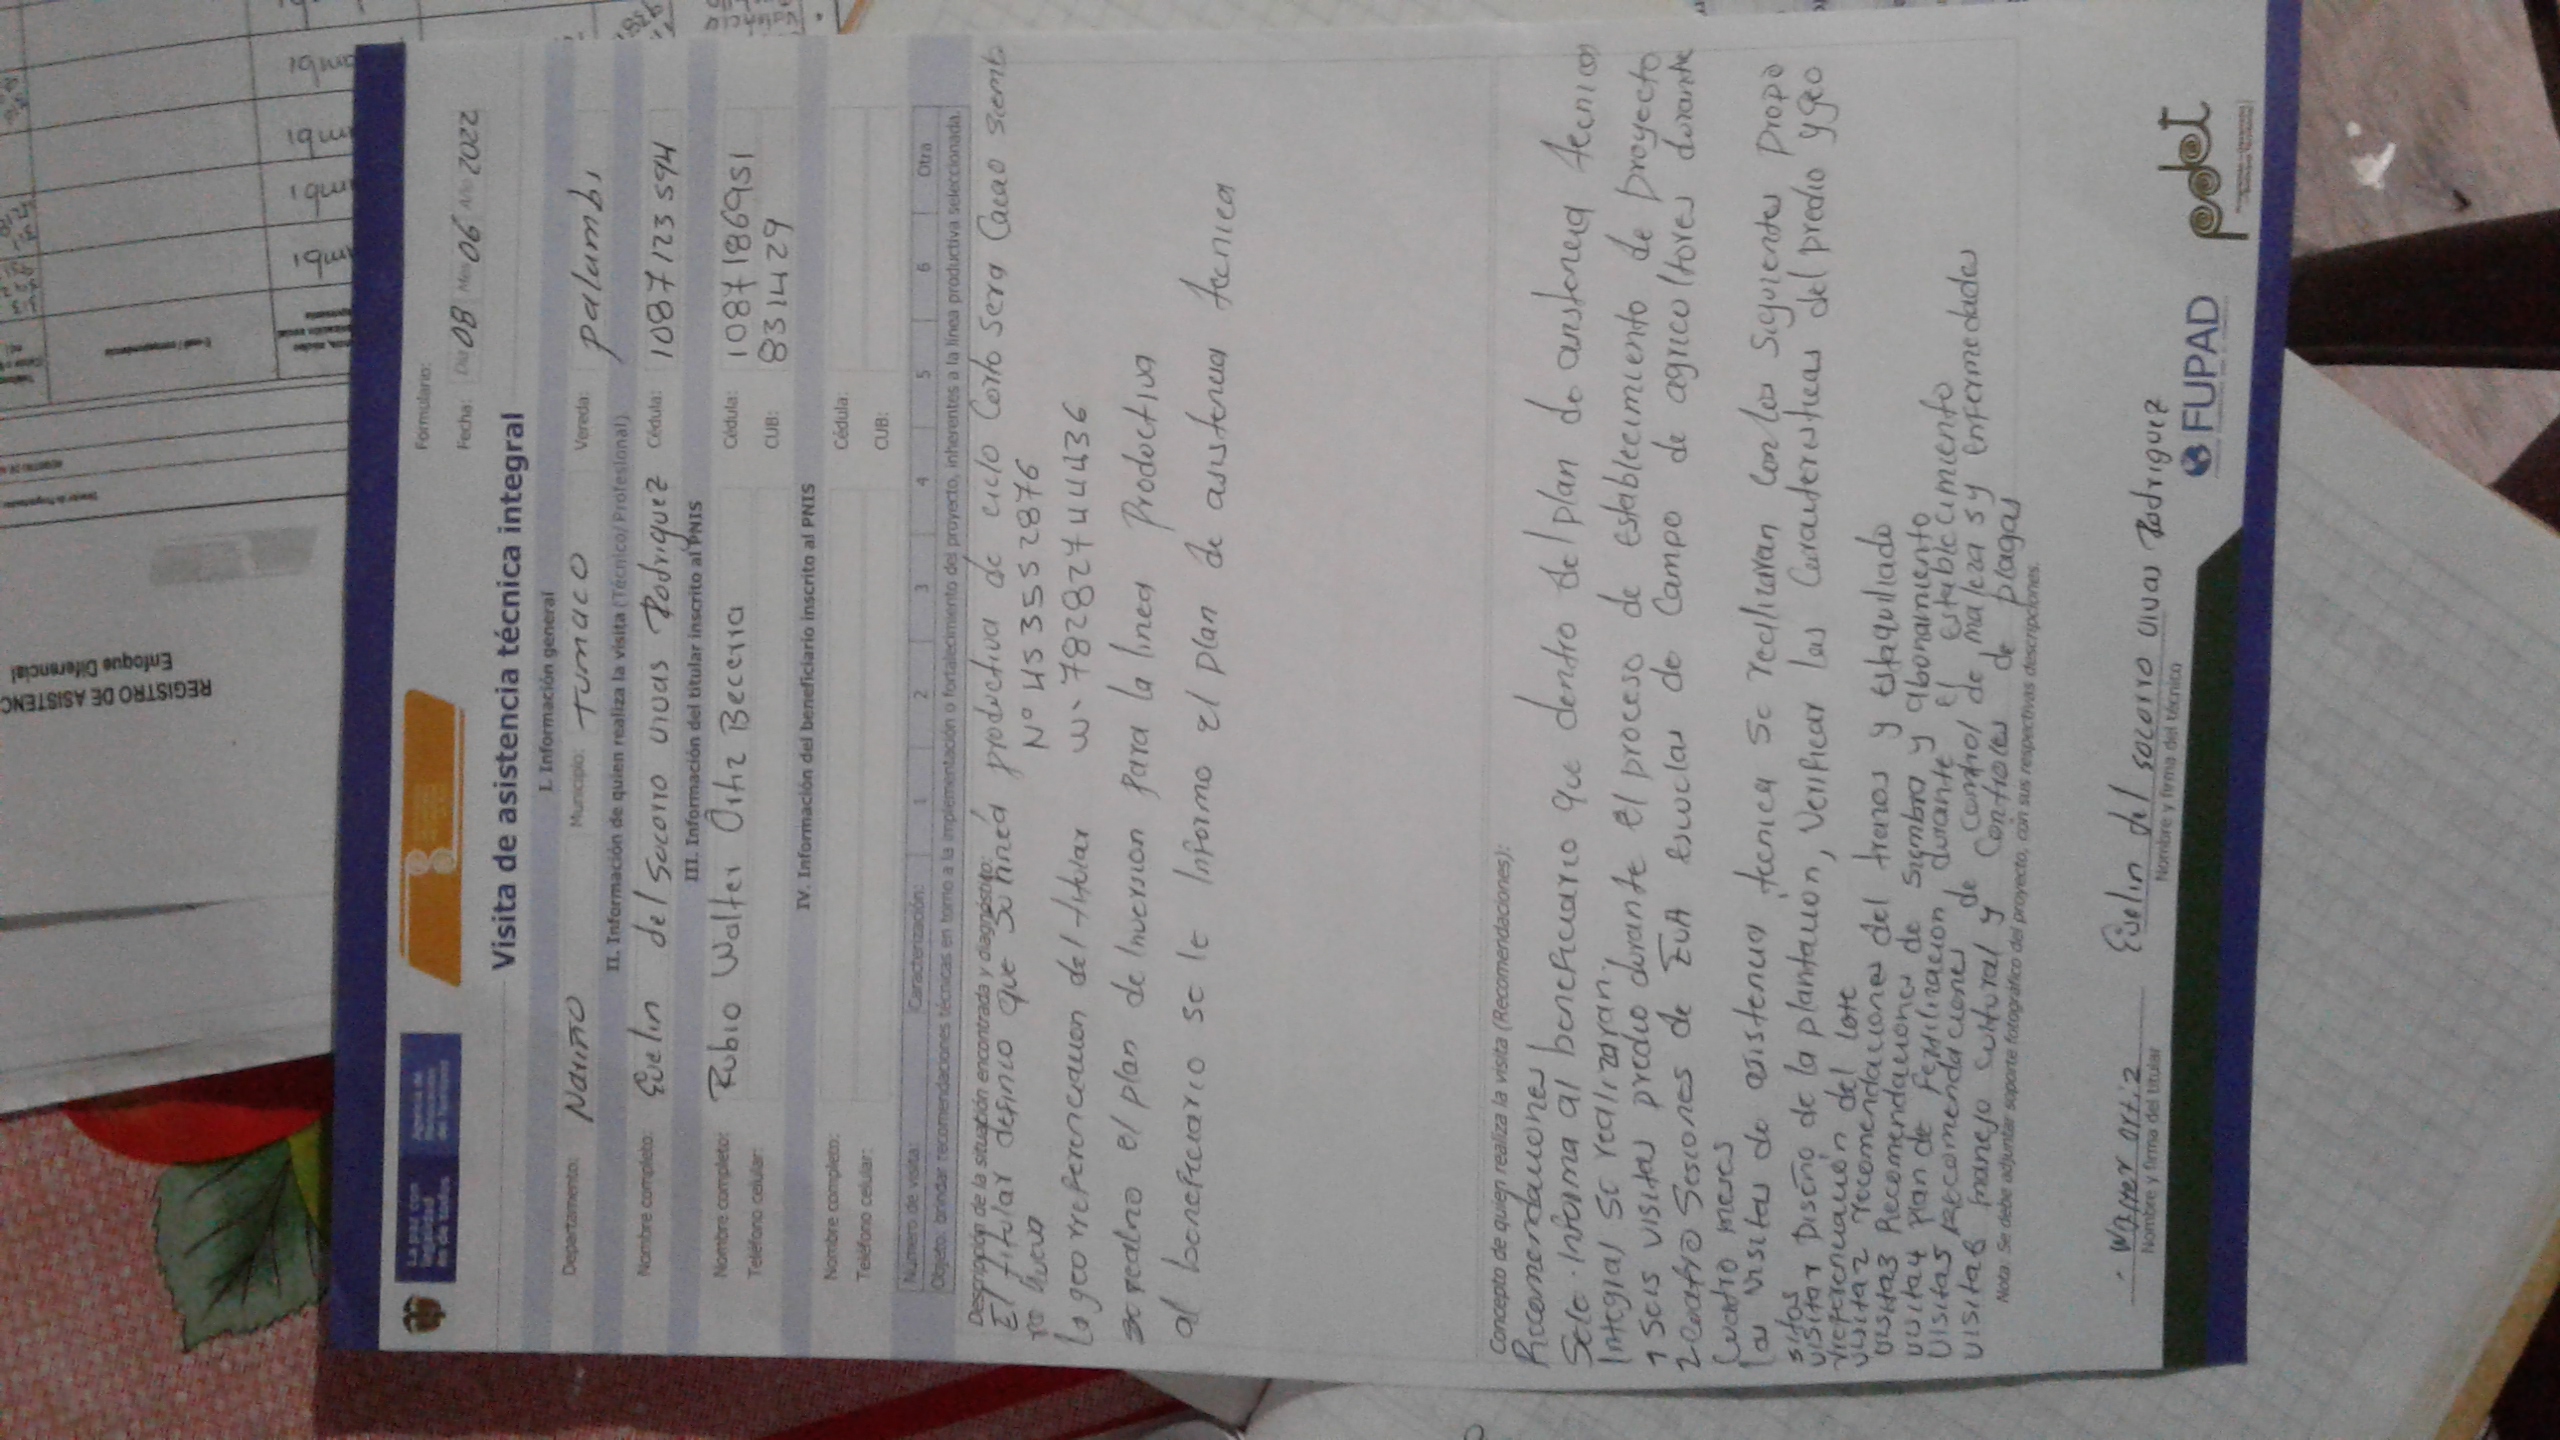 La paz con
legalidad
es de todos
Agencia de
Renovación
del Territorio
Formulario:
Fecha: Día 08 Mes 06 Año 2022
Visita de asistencia técnica integral
I. Información general
Departamento: Nariño Municipio: Tumaco Vereda: palambi
II. Información de quien realiza la visita (Técnico/ Profesional)
Nombre completo: Evelin del Socorro vivas Rodriguez Cédula: 1087123594
III. Información del titular inscrito al PNIS
Nombre completo: Rubio Walter Ortiz Becerra Cédula: 1087186951
Teléfono celular: CUB: 8314429
IV. Información del beneficiario inscrito al PNIS
Nombre completo: Cédula:
Teléfono celular: CUB:
Número de visita: Caracterización: 1 2 3 4 5 6 Otra
Objeto: brindar recomendaciones técnicas en torno a la implementación o fortalecimiento del proyecto, inherentes a la línea productiva seleccionada.
Descripción de la situación encontrada y diagnóstico:
El titular definio que su linea productiva de ciclo corto sera Cacao siemb
ra nueva N° 453552876
la georreferenciacion del titular w- 782827444436
se realizo el plan de Inversion para la linea Productiva
al beneficiario se le Informo el plan de asistencia tecnica
Concepto de quien realiza la visita (Recomendaciones):
Recomendaciones
Sele Informa al beneficiario que dentro del plan de asistencia tecnica
Integral se realizaran:
1 Seis visitas predio durante el proceso de establecimiento de proyecto
2 Cuatro Sesiones de EcA escuelas de Campo de agricultores durante
Cuatro meses
las visitas de asistencia tecnica se realizaran con los siguientes Propo
sitos
visita 1 Diseño de la plantacion, Verificar las Caracteristicas del predio y geo
referenciación del lote
visita 2 recomendaciones del trazos y estaquillado
visita 3 Recomendaciones de siembra y abonamiento
visita 4 Plan de Fertilizacion durante el establecimiento
Visita 5 recomendaciones de control de malezas y enfermedades
visita 6 manejo cultural y Controles de plagas
Nota: Se debe adjuntar soporte fotográfico del proyecto, con sus respectivas descripciones.
Walter ortiz Evelin del socorro vivas Rodriguez
Nombre y firma del titular Nombre y firma del técnico
FUPAD pdet
REGISTRO DE ASISTENC
Enfoque Diferencial